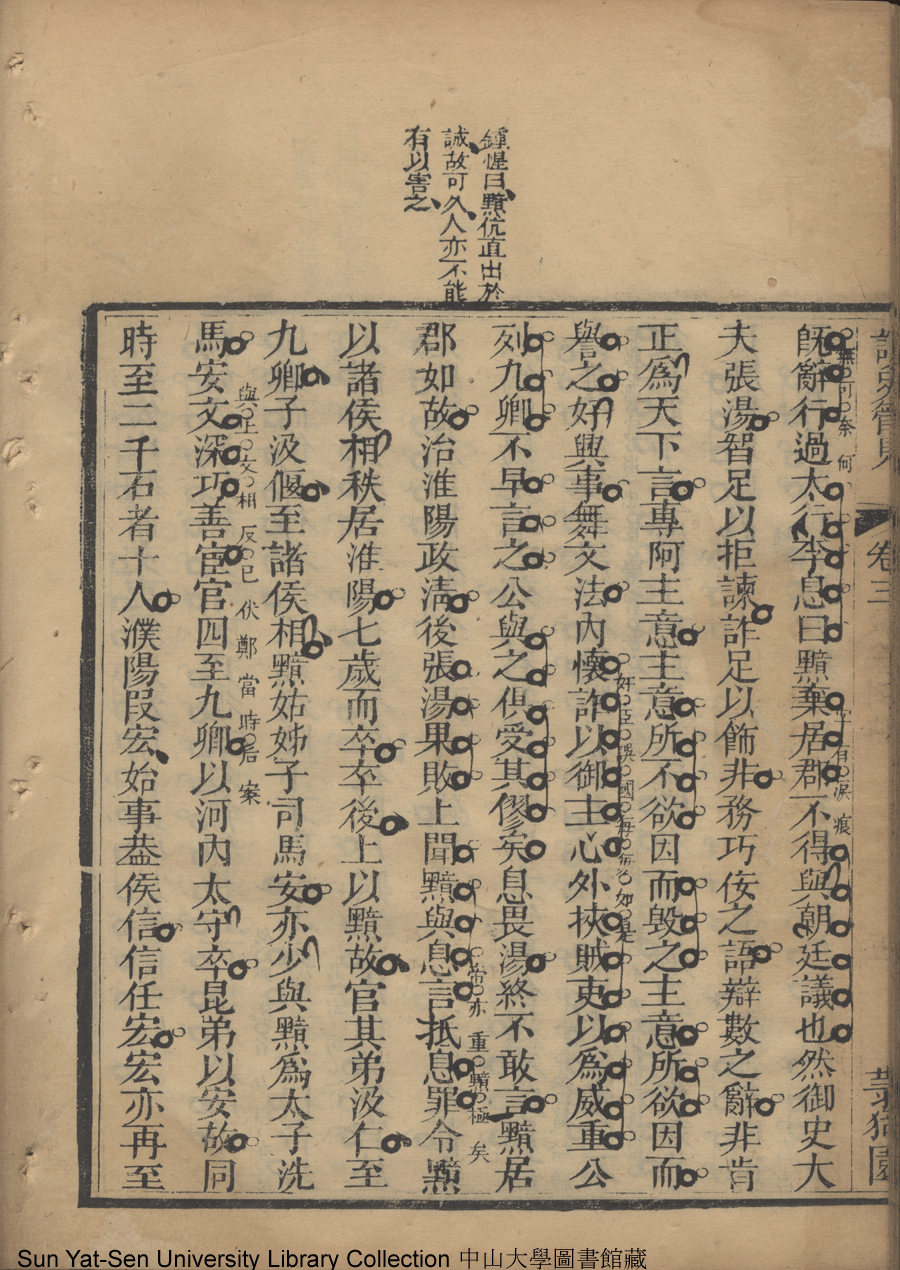 鍾惺曰黯伉直出於
誠故可久人亦不能
有以害之
卷三
既辭行過太行李息曰黯棄居郡不得與朝廷議也然御史大
無可奈何
字字有淚痕
夫張湯智足以拒諫詐足以飾非務巧佞之語辯數之辭非肯
正爲天下言專阿主意主意所不欲因而毀之主意所欲因而
譽之好興事舞文法內懷詐以御主心外挾賊吏以爲威重公
奸臣誤國每每如是
列九卿不早言之公與之俱受其僇矣息畏湯終不敢言黯居
郡如故治淮陽政清後張湯果敗上聞黯與息言抵息罪令黯
帝亦重黯極矣
以諸侯相秩居淮陽七歲而卒卒後上以黯故官其弟汲仁至
九卿子汲偃至諸侯相黯姑姊子司馬安亦少與黯爲太子洗
馬安文深巧善宦官四至九卿以河內太守卒昆弟以安故同
與上文相反已伏鄭當時居案
時至二千石者十人濮陽段宏始事葢侯信信任宏宏亦再至
Sun Yat-Sen University Library Collection 中山大學圖書館藏